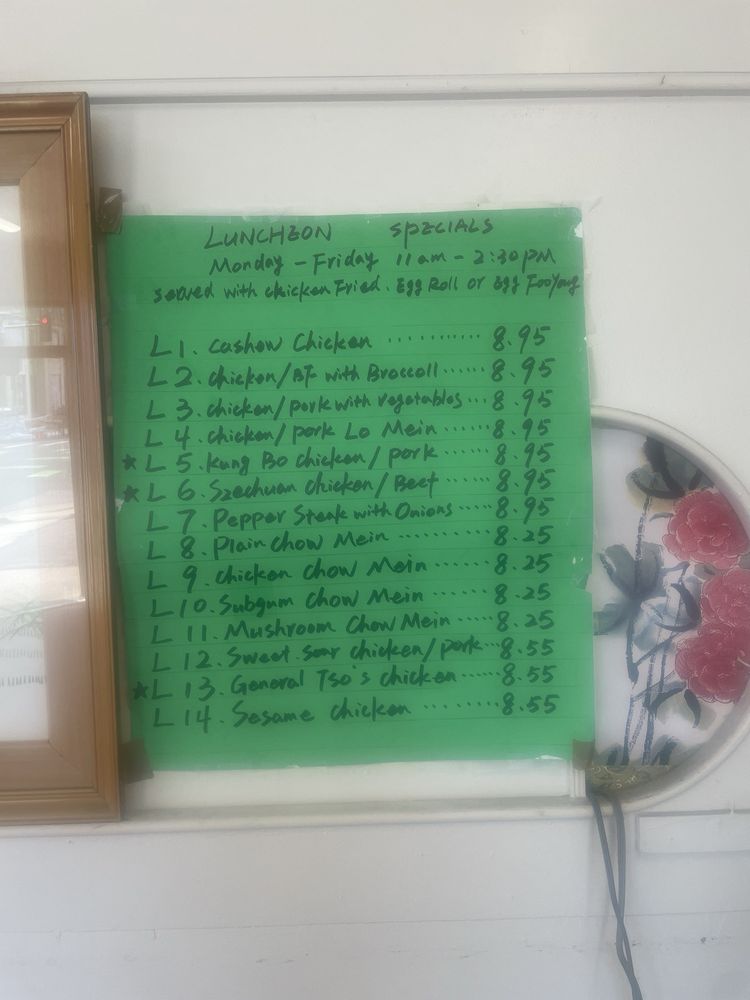 LUNCHEON SPECIALS
Monday - Friday 11am - 2:30PM
served with chicken Fried. Egg Roll or Egg FooYong
L 1. Cashew Chicken ........... 8.95
L 2. chicken/BF with Broccoli ...... 8.95
L 3. chicken/pork with vegetables ... 8.95
L 4. chicken/pork Lo Mein ...... 8.95
★ L 5. Kung Bo chicken/pork ..... 8.95
★ L 6. Szechuan chicken/Beef ..... 8.95
L 7. Pepper Steak with Onions ..... 8.95
L 8. Plain Chow Mein ......... 8.25
L 9. chicken Chow Mein ...... 8.25
L 10. Subgum Chow Mein ...... 8.25
L 11. Mushroom Chow Mein ..... 8.25
L 12. Sweet. sour chicken/pork ... 8.55
★ L 13. General Tso's chicken ..... 8.55
L 14. Sesame chicken ........ 8.55